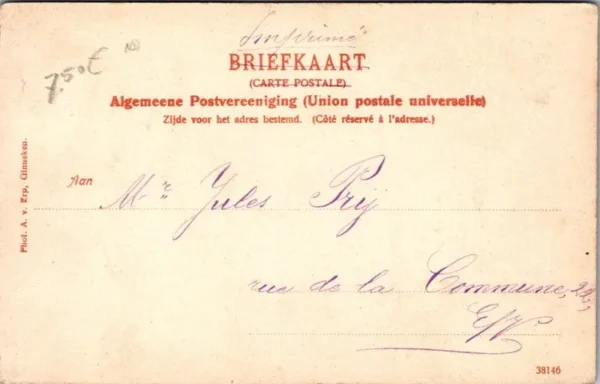 Imprimé
BRIEFKAART
(CARTE POSTALE)
7.50€
Algemeene Postvereeniging (Union postale universelle)
Zijde voor het adres bestemd. (Côté réservé à l'adresse.)
Phot. A. v. Erp, Ginneken.
Aan
Mr. Jules Prij
rue de la Commune,
E/V
38146